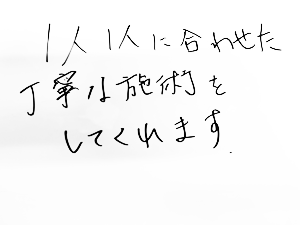 1人1人に合わせた
丁寧な施術を
してくれます.